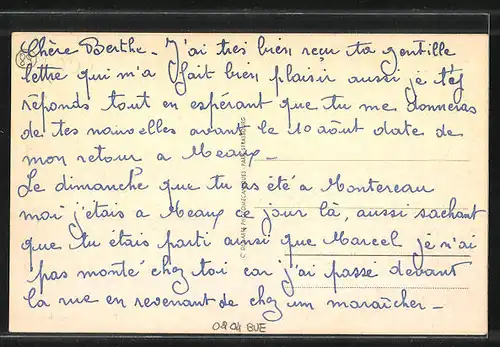 Chère Berthe - J'ai très bien reçu ta gentille
lettre qui m'a fait bien plaisir aussi je t'y
réponds tout en espérant que tu me donneras
de tes nouvelles avant le 10 août date de
mon retour a Meaux -
Le dimanche que tu as été a Montereau
moi j'étais a Meaux ce jour là, aussi sachant
que tu étais parti ainsi que Marcel je n'ai
pas monté chez toi car j'ai passé devant
la rue en revenant de chez un maraîcher -
0204 BUE